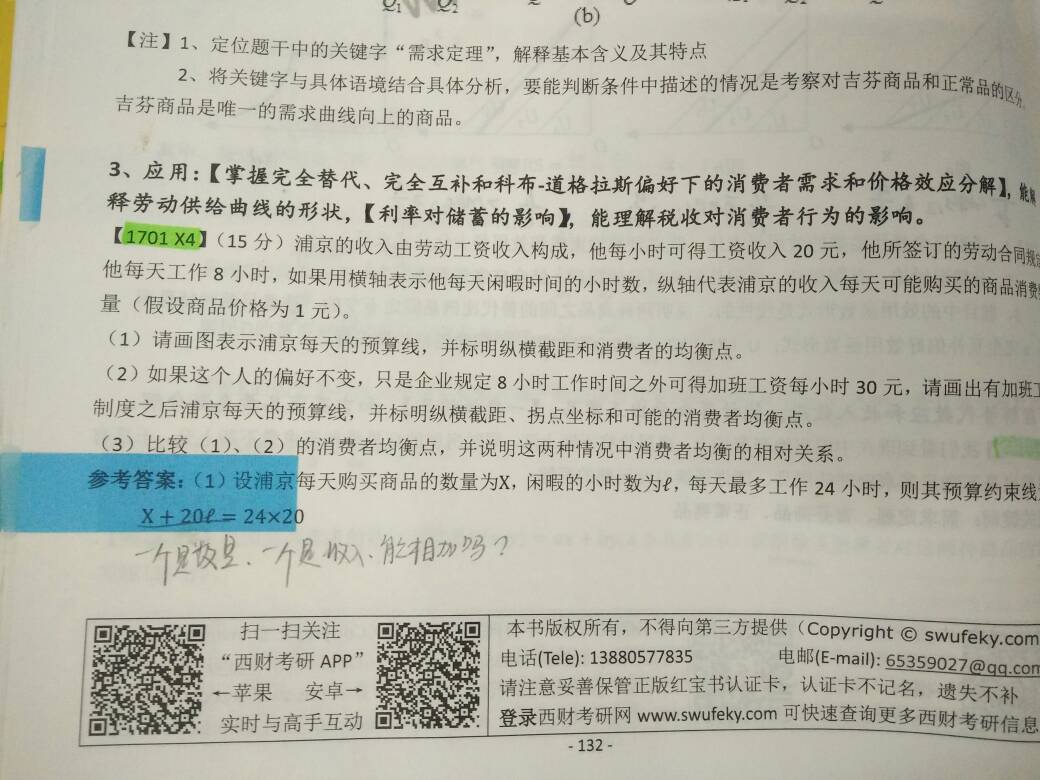 Q₁ Q₂
(b)
【注】1、定位题干中的关键字“需求定理”，解释基本含义及其特点
2、将关键字与具体语境结合具体分析，要能判断条件中描述的情况是考察对吉芬商品和正常品的区分，
吉芬商品是唯一的需求曲线向上的商品。
3、应用：【掌握完全替代、完全互补和科布-道格拉斯偏好下的消费者需求和价格效应分解】，能解
释劳动供给曲线的形状，【利率对储蓄的影响】，能理解税收对消费者行为的影响。
【1701 X4】（15 分）浦京的收入由劳动工资收入构成，他每小时可得工资收入 20 元，他所签订的劳动合同规
他每天工作 8 小时，如果用横轴表示他每天闲暇时间的小时数，纵轴代表浦京的收入每天可能购买的商品消费
量（假设商品价格为 1 元）。
（1）请画图表示浦京每天的预算线，并标明纵横截距和消费者的均衡点。
（2）如果这个人的偏好不变，只是企业规定 8 小时工作时间之外可得加班工资每小时 30 元，请画出有加班工
制度之后浦京每天的预算线，并标明纵横截距、拐点坐标和可能的消费者均衡点。
（3）比较（1）、（2）的消费者均衡点，并说明这两种情况中消费者均衡的相对关系。
参考答案：（1）设浦京每天购买商品的数量为X，闲暇的小时数为ℓ，每天最多工作 24 小时，则其预算约束线
X + 20ℓ = 24×20
一个是数量、一个是收入、能相加吗？
扫一扫关注
“西财考研 APP”
←苹果 安卓→
实时与高手互动
本书版权所有，不得向第三方提供（Copyright © swufeky.com
电话(Tele): 13880577835 电邮(E-mail): 65359027@qq.com
请注意妥善保管正版红宝书认证卡，认证卡不记名，遗失不补
登录西财考研网 www.swufeky.com 可快速查询更多西财考研信息
- 132 -